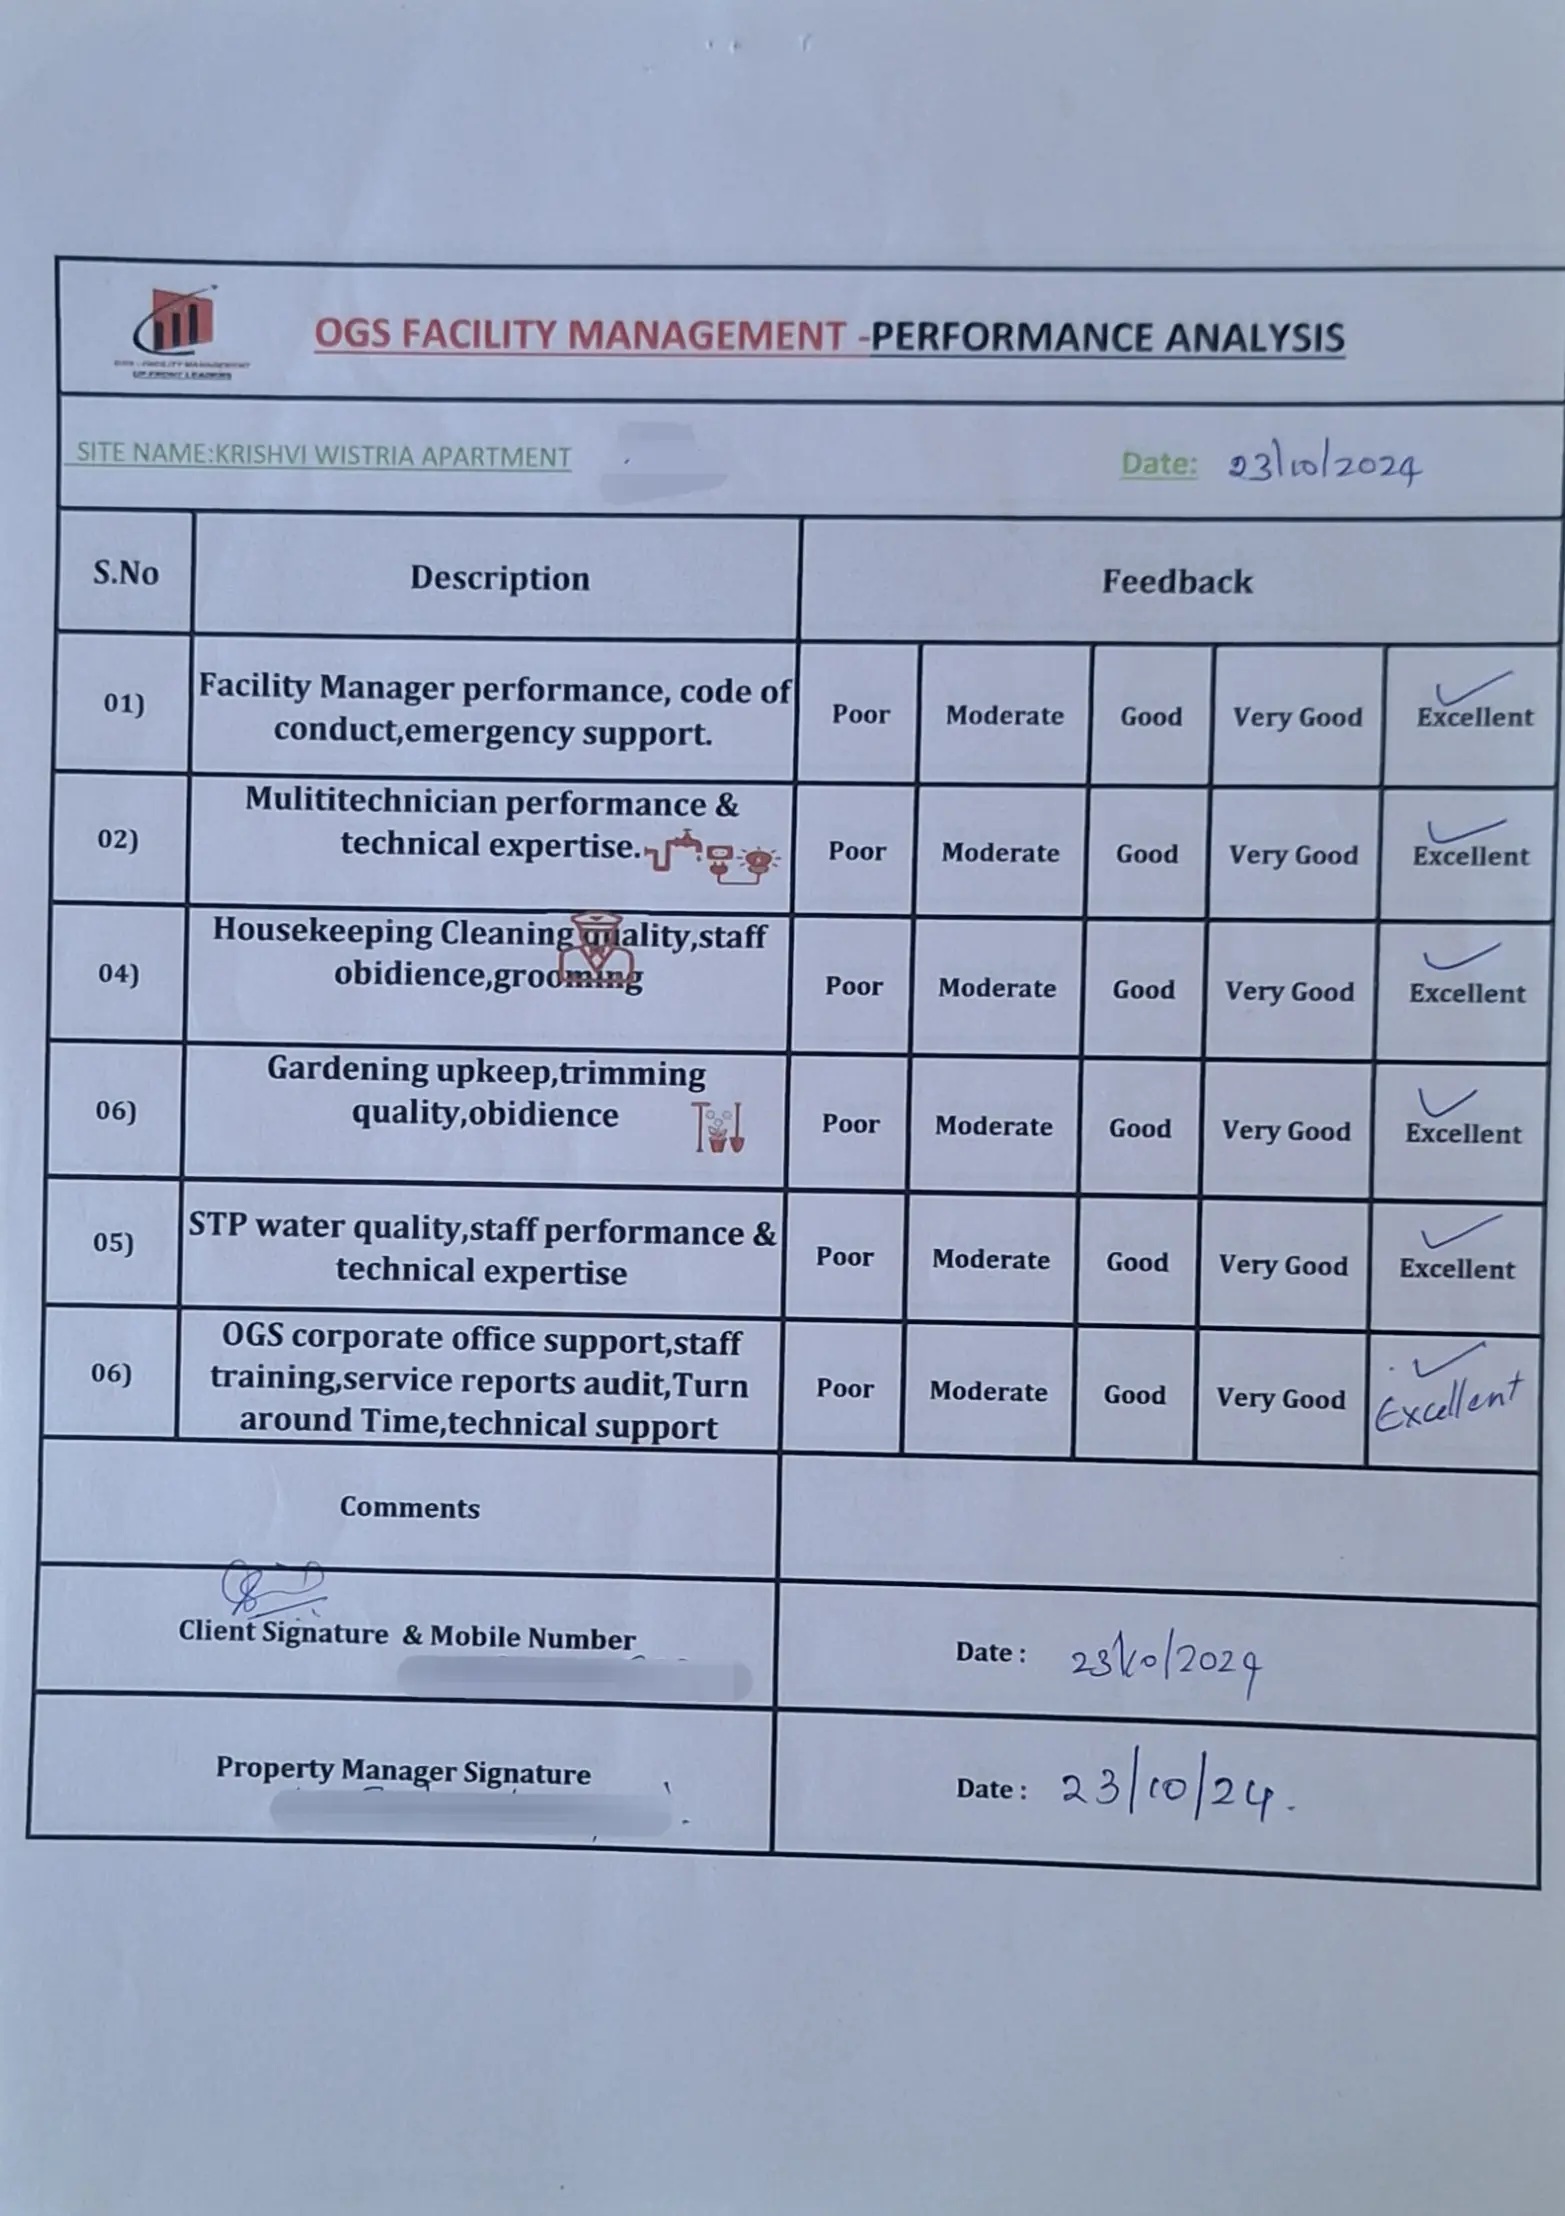 OGS - FACILITY MANAGEMENT
UP FRONT LEADERS
OGS FACILITY MANAGEMENT -PERFORMANCE ANALYSIS
SITE NAME:KRISHVI WISTRIA APARTMENT
Date: 23/10/2024
S.No Description Feedback
01) Facility Manager performance, code of
conduct,emergency support.
Poor Moderate Good Very Good Excellent
02) Mulititechnician performance &
technical expertise.
Poor Moderate Good Very Good Excellent
04) Housekeeping Cleaning quality,staff
obidience,grooming
Poor Moderate Good Very Good Excellent
06) Gardening upkeep,trimming
quality,obidience
Poor Moderate Good Very Good Excellent
05) STP water quality,staff performance &
technical expertise
Poor Moderate Good Very Good Excellent
06) OGS corporate office support,staff
training,service reports audit,Turn
around Time,technical support
Poor Moderate Good Very Good Excellent
Comments
Client Signature & Mobile Number
Date : 23/10/2024
Property Manager Signature
Date : 23/10/24.